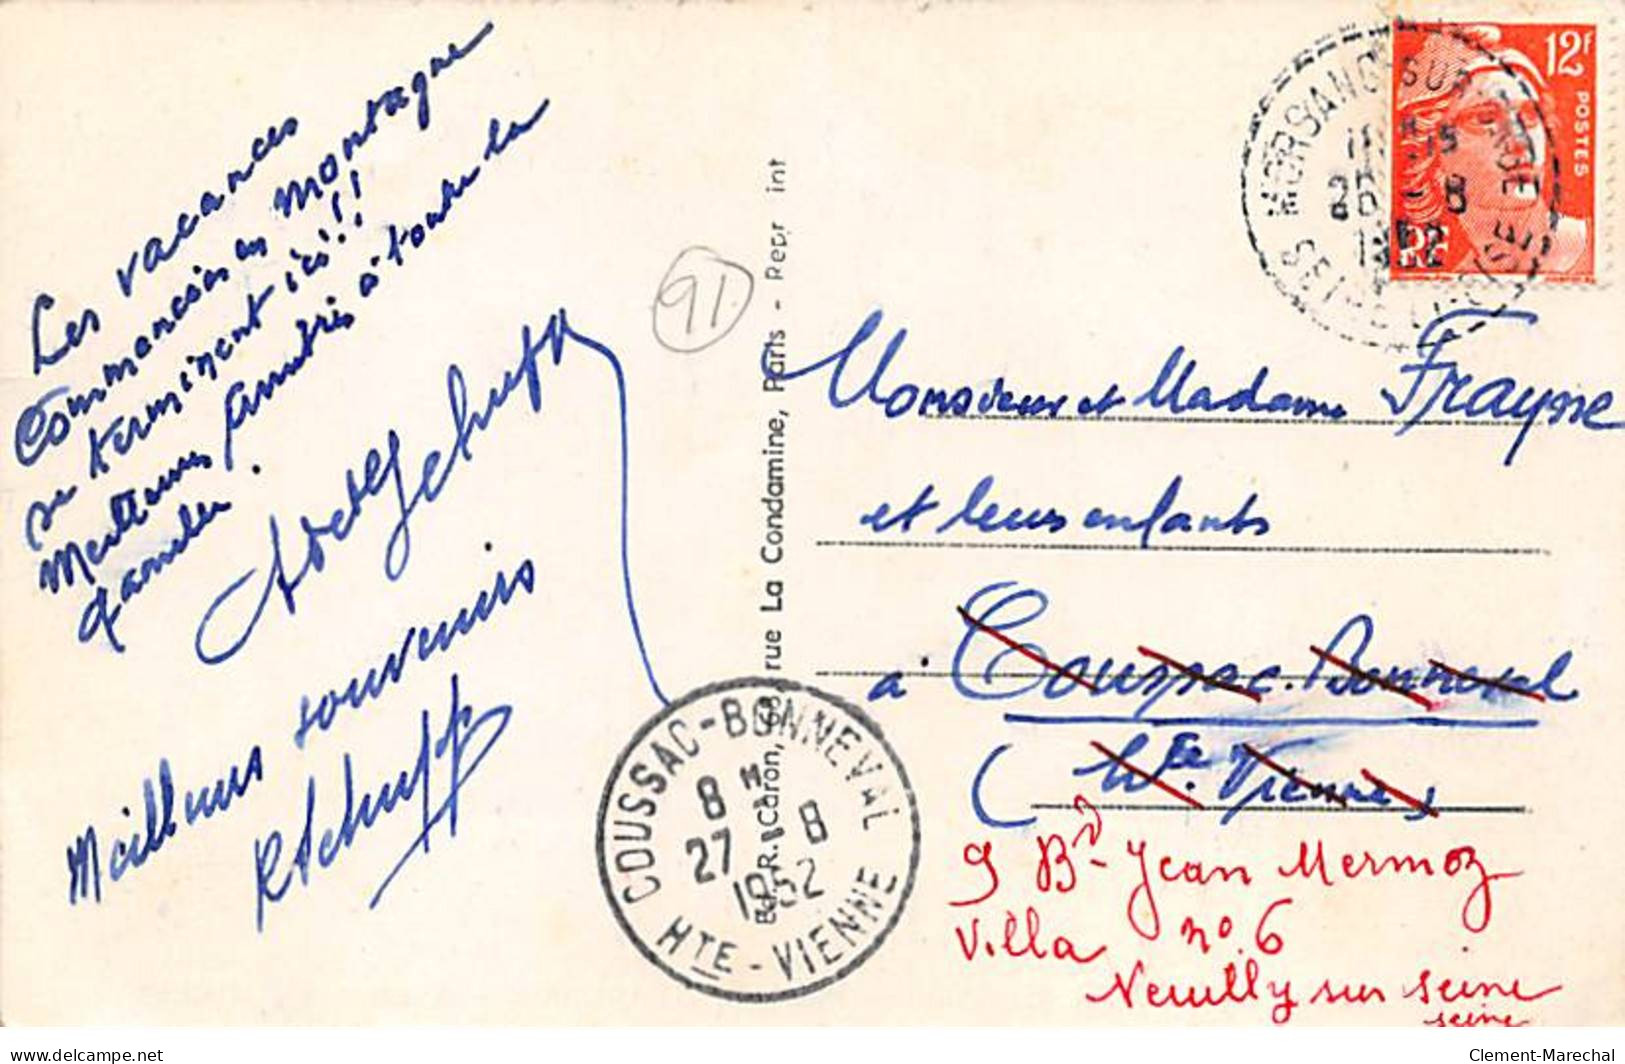 Les vacances
Commencées en Montagne
se terminent ici!!
Meilleures Amitiés à toute la
famille.
Meilleurs souvenirs
91
B.F. R. Caron, rue La Condamine, Paris - Repr int
12F
POSTES
RF
MORSANG-SUR-ORGE
26 - 8
1952
SEINE-ET-OISE
Monsieur et Madame Fraysse
et leurs enfants
à Coussac-Bonneval
(Hte. Vienne)
COUSSAC-BONNEVAL
8 H
27 - 8
1952
HTE-VIENNE
9 Bd Jean Mermoz
Villa no. 6
Neuilly sur Seine
Seine
delcampe.net
Clement-Marechal